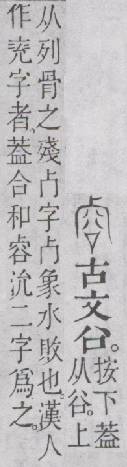 古文㕣。
按下蓋
从谷。上
从列骨之殘𣦵字𣦵象水敗也。漢人
作兖字者、蓋合和㕡沇二字爲之。